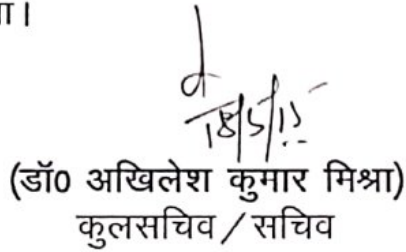 ा।
18/5/15
(डॉ0 अखिलेश कुमार मिश्रा)
कुलसचिव / सचिव